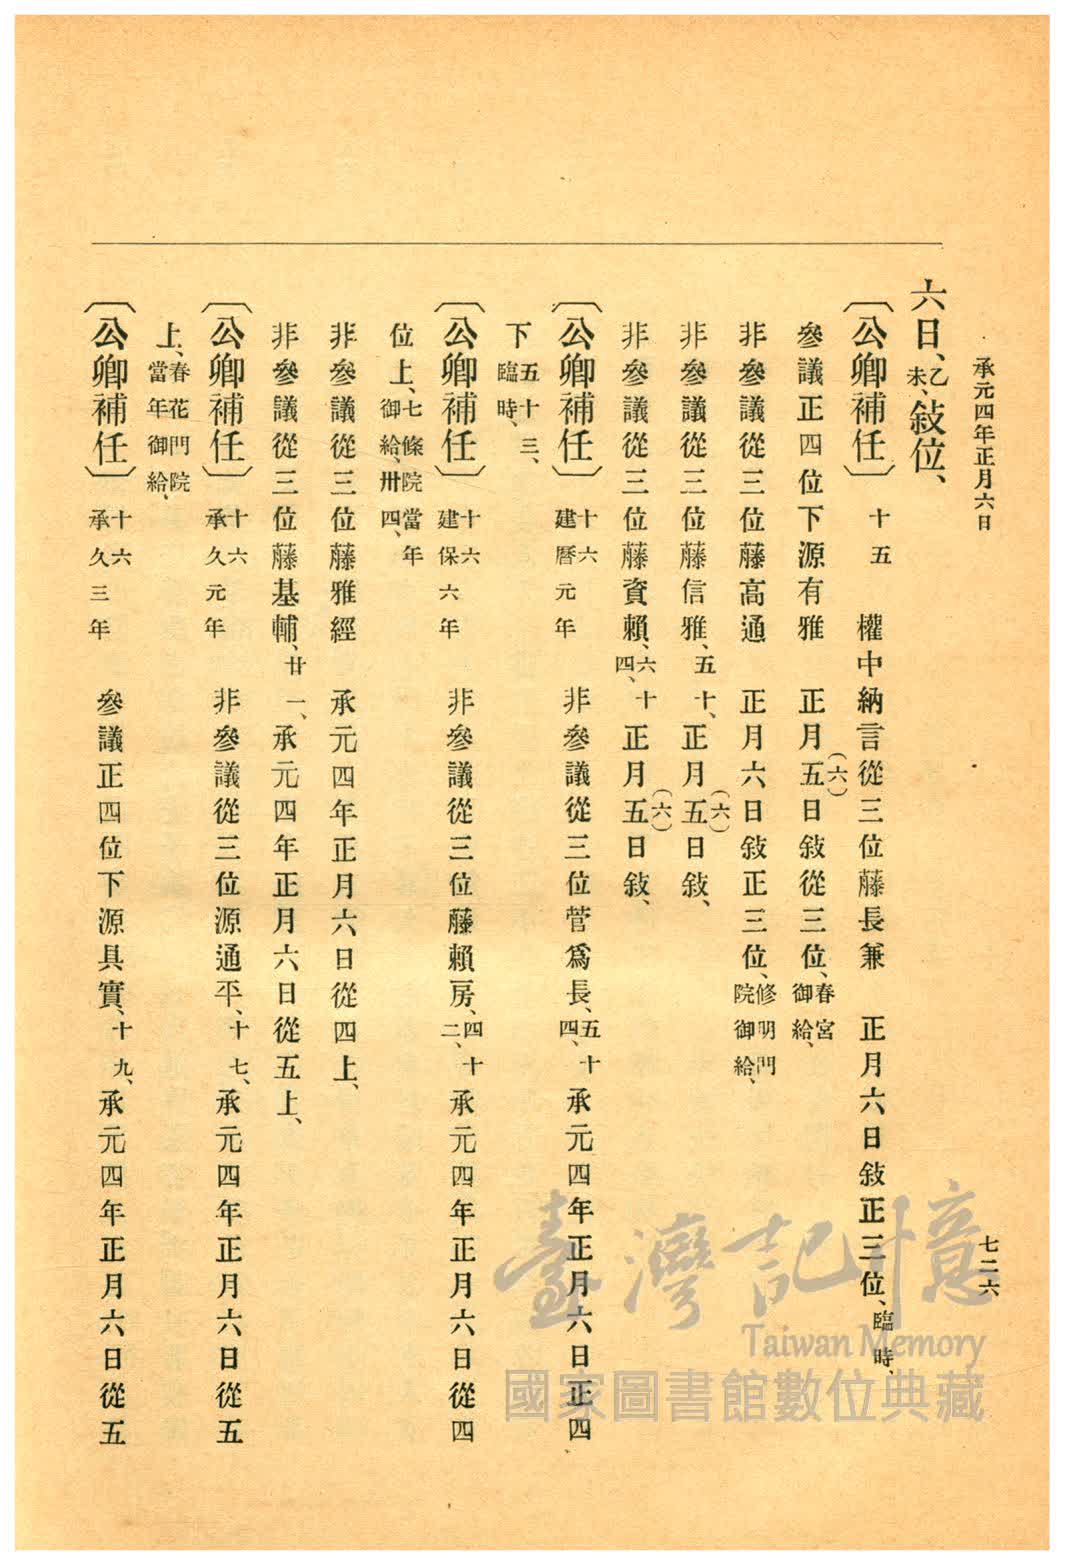 承元四年正月六日
七二六
六日、乙未、敍位、
〔公卿補任〕十五 權中納言從三位藤長兼 正月六日敍正三位、臨時、
參議正四位下源有雅 正月五(六)日敍從三位、春宮御給、
非參議從三位藤高通 正月六日敍正三位、修明門院御給、
非參議從三位藤信雅、五十、正月五(六)日敍、
非參議從三位藤資賴、六十四、正月五(六)日敍、
〔公卿補任〕十六建曆元年 非參議從三位菅爲長、五十四、承元四年正月六日正四
下、五十三、臨時、
〔公卿補任〕十六建保六年 非參議從三位藤賴房、四十二、承元四年正月六日從四
位上、七條院當年御給、卅四、
非參議從三位藤雅經 承元四年正月六日從四上、
非參議從三位藤基輔、廿一、承元四年正月六日從五上、
〔公卿補任〕十六承久元年 非參議從三位源通平、十七、承元四年正月六日從五
上、春花門院當年御給、
〔公卿補任〕十六承久三年 參議正四位下源具實、十九、承元四年正月六日從五
臺灣記憶
Taiwan Memory
國家圖書館數位典藏